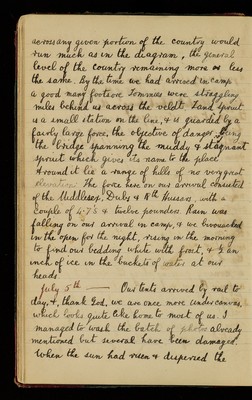 across any given portion of the country would
run much as in the diagram, the general
level of the country remaining more or less
the same. By the time we had arrived in camp
a good many footsore Tommies were straggling
miles behind us across the veldt. Zand Spruit
is a small station on the line, & is guarded by a
fairly large force, the objective of danger being
the bridge spanning the muddy & stagnant
spruit which gives its name to the place.
Around it lie a range of hills of no very great
elevation. The force here on our arrival consisted
of the Middlesex, Dubs & 18th Hussars, with a
couple of 4.7's & twelve pounders. Rain was
falling on our arrival in camp, & we bivouacked
in the open for the night, rising in the morning
to find our bedding white with frost, & ½ an
inch of ice in the buckets of water at our
heads.
July 5th — Our tents arrived by rail to
day, & thank God, we are once more under canvas,
which looks quite like home to most of us. I
managed to wash the batch of photos already
mentioned but several have been damaged.
When the sun had risen & dispersed the